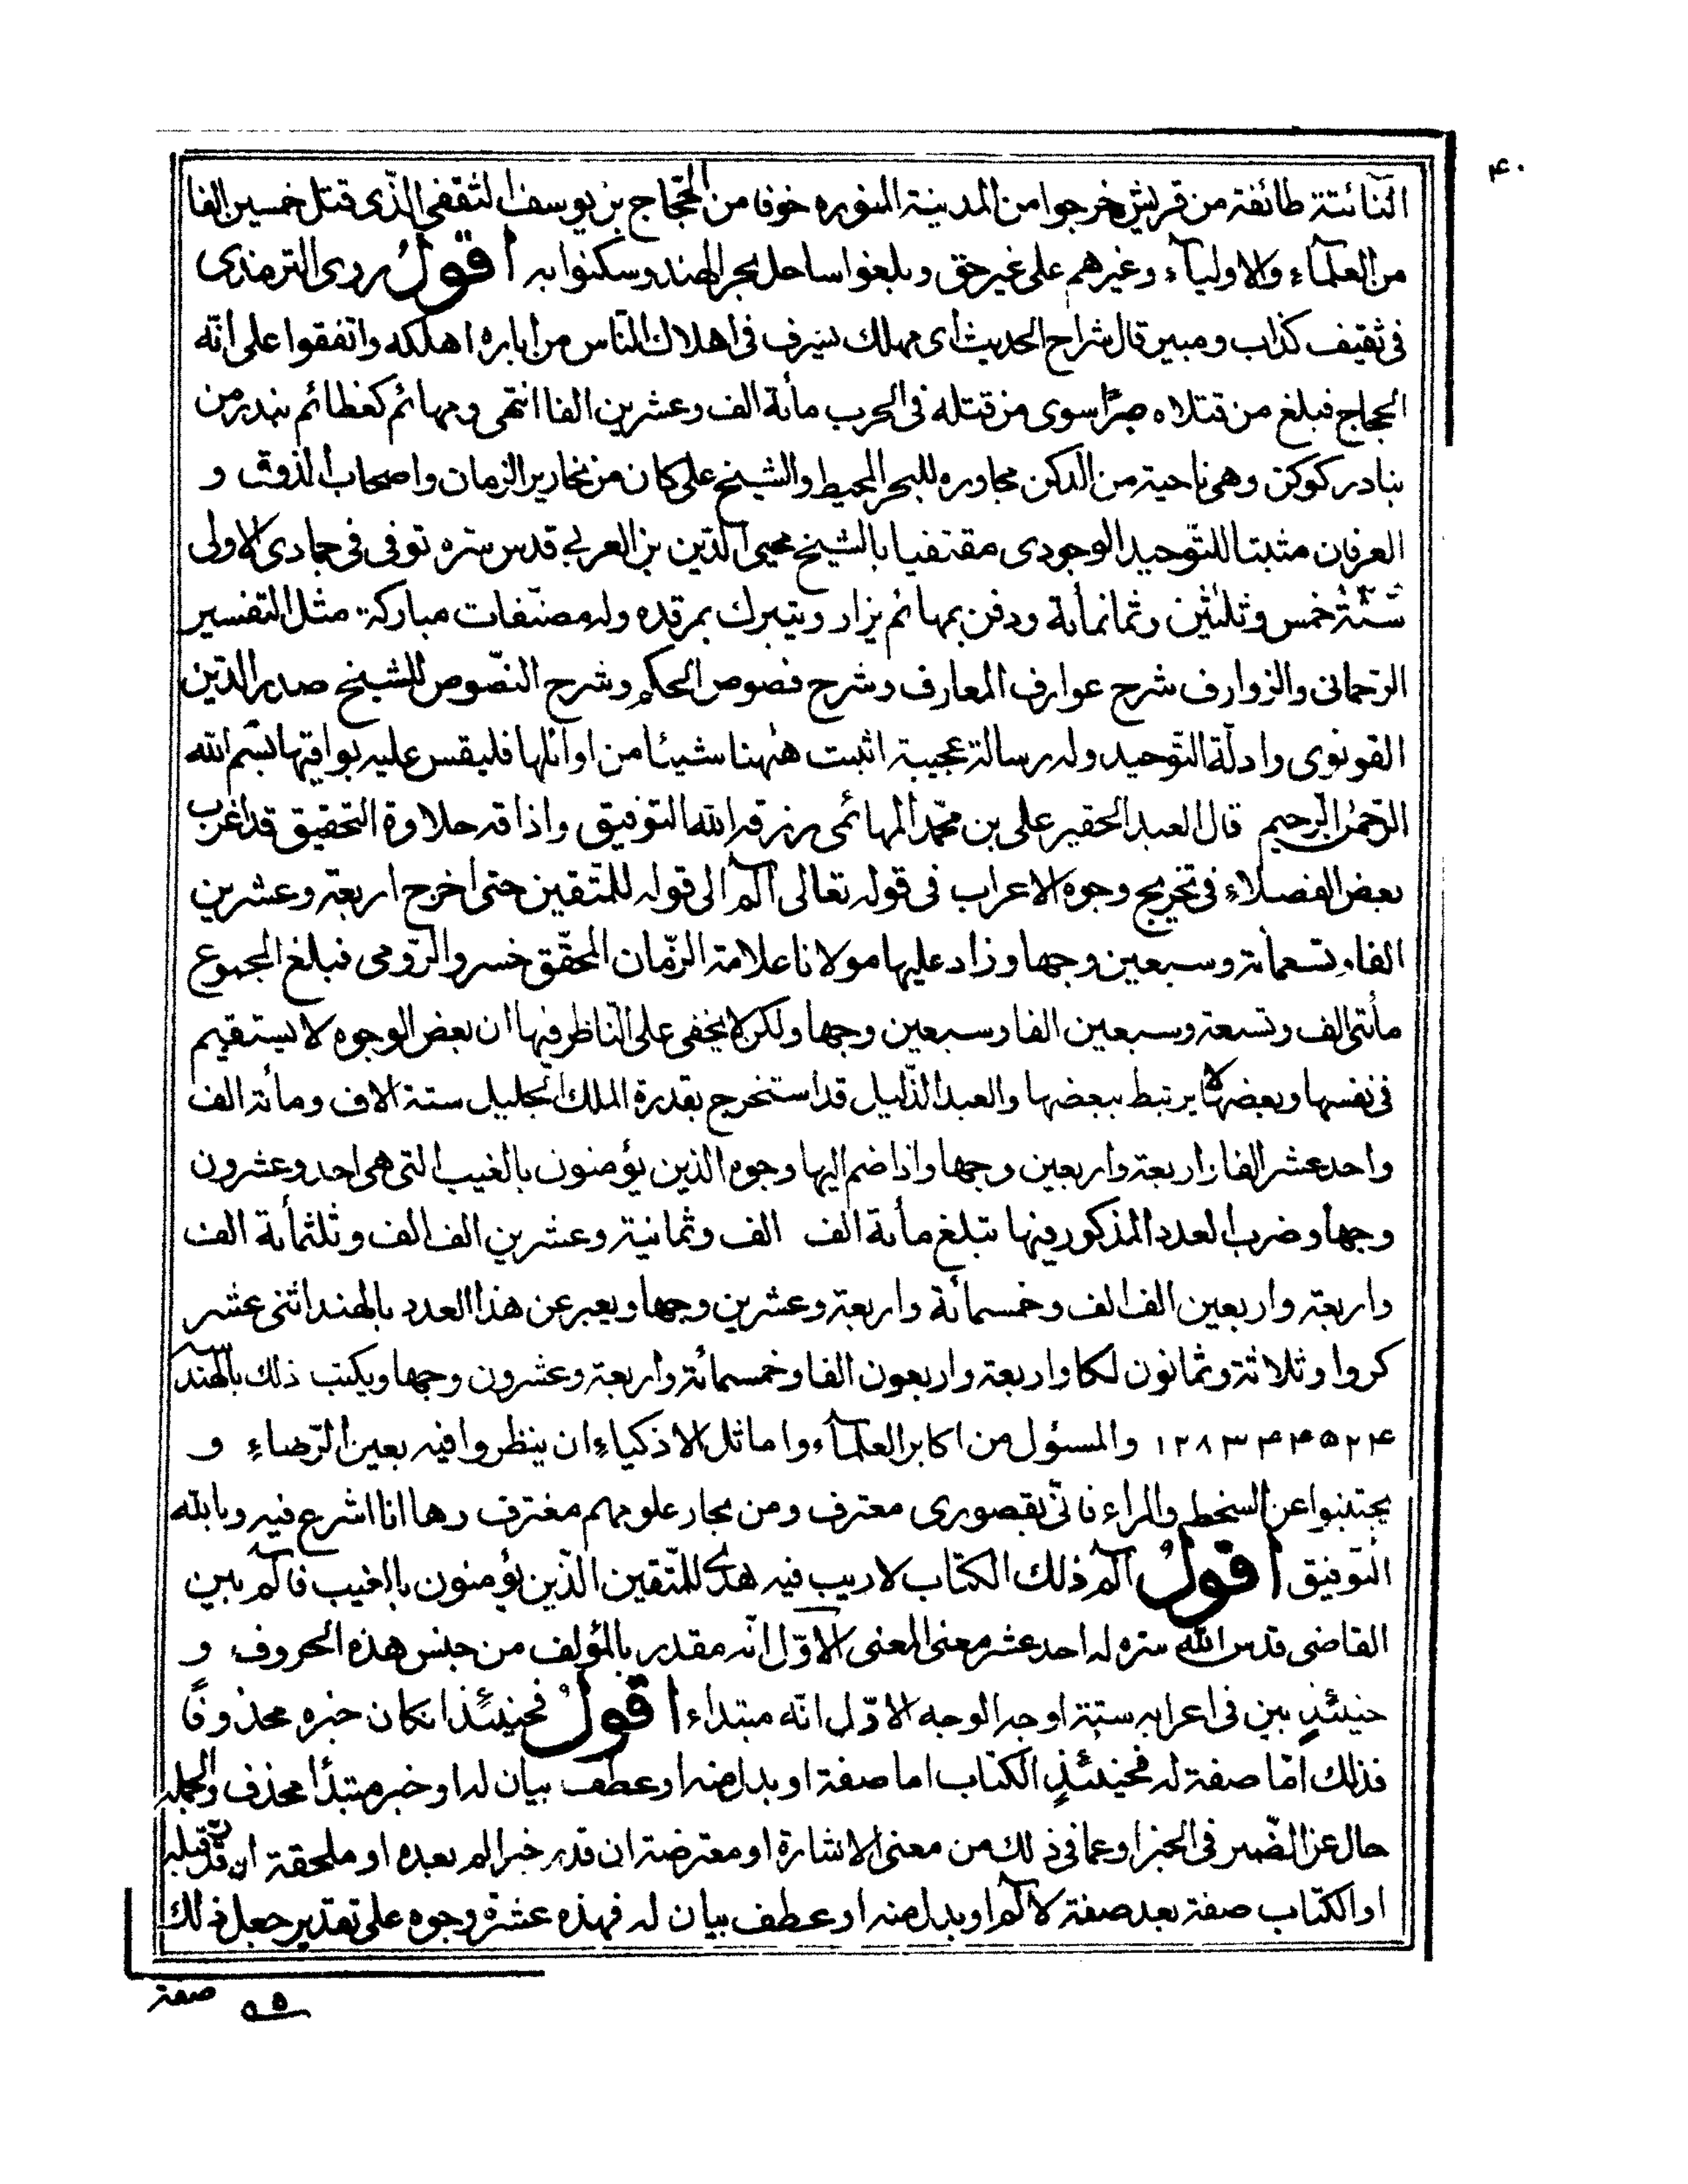 ۴۰
النّائتة طائفة من قريش خرجوا من المدينة المنوره خوفا من الحجّاج بن يوسف الثقفي الذّي قتل خمسين الفا
من العلمآء والاوليآء وغيرهم على غير حق وبلغوا ساحل بحر الهند وسكنوا به اقولُ روى الترمذى
فى ثقيف كذاب ومبير قال شراح الحديث اى مهلك يسرف فى اهلاك النّاس من اباره اهلكه واتفقوا على انّه
الحجاج فبلغ من قتلاه صبرًا سوى من قتله فى الحرب مأئة الف وعشرين الفا انتهى ومهائم كعظائم بندر من
بنادر كوكن وهى ناحية من الدكن مجاوره للبحر المحيط والشيخ على كان من نحارير الزمان واصحاب الذوق و
العرفان مثبتا للتّوحيد الوجودى مقتفيا بالشيخ محيى الدّين بن العربي قدس سّره توفى فى جمادى الاولى
سَنَةُ خمس وثلٰثين وثمانمأية ودفن بمهائم يزار ويتبرك بمرقده وله مصنّفات مباركة مثل التفسير
الرّحمانى والزوارف شرح عوارف المعارف وشرح فصوص الحكم وشرح النصّوص للشيخ صدر الدّين
القونوى وادلّة التّوحيد وله رسالة عجيبة اثبت هٰهنا شيئا من اوائلها فليقس عليه بواقيها بسْم الله
الرّحمٰن الرّحيم قال العبد الحقير على بن محمّد المهائمى رزقه الله التوفيق واذاقه حلاوة التحقيق قد اغرب
بعض الفضلاء فى تخريج وجوه الاعراب فى قوله تعالى آلٓم الى قوله للمتّقين حتى اخرج اربعة وعشرين
الفا وتسعمائة وسبعين وجها وزاد عليها مولانا علامة الزّمان المحقّق خسرو الرّومى فبلغ المجموع
مأتى الف وتسعة وسبعين الفا وسبعين وجها ولكن لا يخفى على النّاظر فيها ان بعض الوجوه لا يستقيم
فى نفسها وبعضها لا يرتبط ببعضها والعبد الذّليل قد استخرج بقدرة الملك الجليل ستة الاف ومأئة الف
واحد عشر الفا واربعة واربعين وجها واذا ضم اليها وجوه الذين يؤمنون بالغيب التى هى احد وعشرون
وجها وضرب العدد المذكور فيها تبلغ مأئة الف الف وثمانية وعشرين الف الف وثلثمأية الف
واربعة واربعين الف الف وخمسمائة واربعة وعشرين وجها ويعبر عن هذا العدد بالهند اثنى عشر
كروا وثلاثة وثمانون لكا واربعة واربعون الفا وخمسمائة واربعة وعشرون وجها ويكتب ذلك بالهند
۱۲۸۳۴۴۵۲۴ والمسئول من اكابر العلمآء واماثل الاذكياء ان ينظروا فيه بعين الرّضاء و
يجتنبوا عن السخط والمراء فانّى بقصورى معترف ومن بحار علومهم مغترف وها انا اشرع فيه وبالله
التّوفيق اقولُ آلٓم ذلك الكتاب لاريب فيه هدًى للمتّقين الّذين يؤمنون بالغيب فالٓم بين
القاضى قدس الله سّره له احد عشر معنى المعنى الاوّل انّه مقدر بالمؤلف من جنس هذه الحروف و
حينئذٍ بين فى اعرابه ستة اوجه الوجه الاوّل انّه مبتداء اقولُ فحينئذ انكان خبره محذوفًا
فذلك امّا صفة له فحينئذٍ الكتاب اما صفة او بدل منه او عطف بيان له او خبر مبتدأ محذف والجملة
حال عن الضّمير فى الخبر او عما فى ذلك من معنى الاشارة او معترضة ان قدر خبر الم بعده او ملحقة ان قدّر قبله
او الكتاب صفة بعد صفة لالٓم او بدل منه او عطف بيان له فهذه عشرة وجوه على تقدير جعل ذلك
صفة